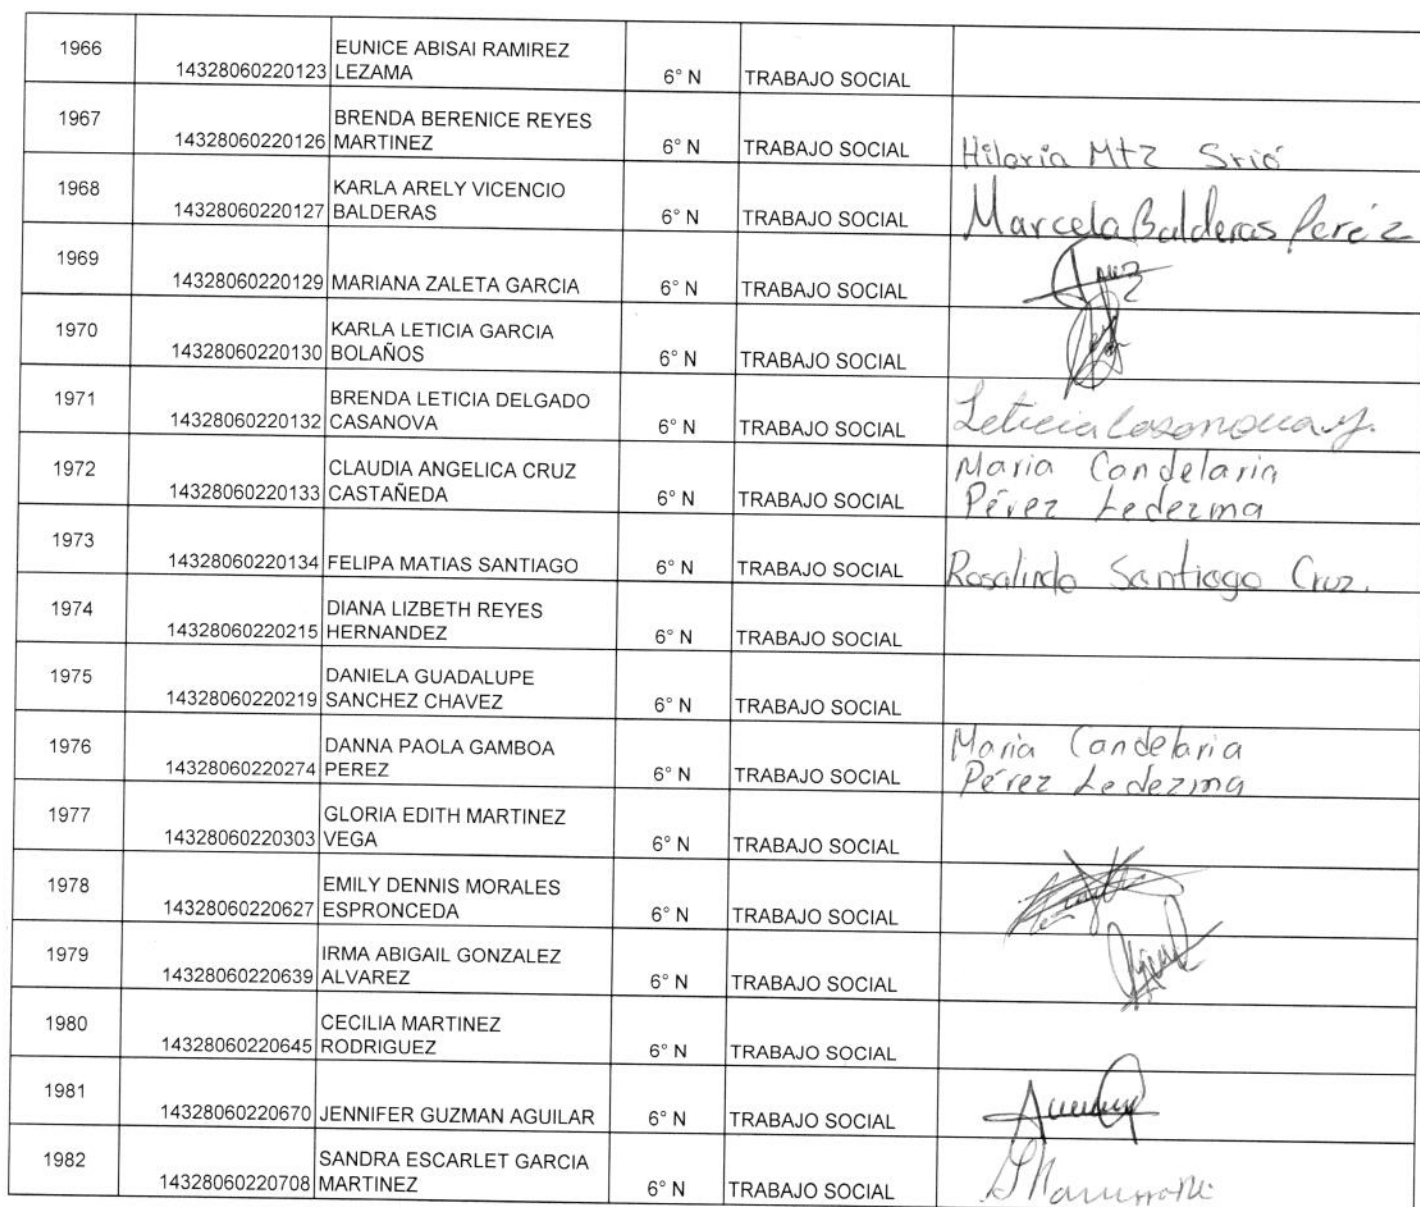 1966 14328060220123 EUNICE ABISAI RAMIREZ
LEZAMA 6° N TRABAJO SOCIAL
1967 14328060220126 BRENDA BERENICE REYES
MARTINEZ 6° N TRABAJO SOCIAL Hilaria Mtz Srió
1968 14328060220127 KARLA ARELY VICENCIO
BALDERAS 6° N TRABAJO SOCIAL Marcela Balderas Peréz
1969 14328060220129 MARIANA ZALETA GARCIA 6° N TRABAJO SOCIAL
1970 14328060220130 KARLA LETICIA GARCIA
BOLAÑOS 6° N TRABAJO SOCIAL
1971 14328060220132 BRENDA LETICIA DELGADO
CASANOVA 6° N TRABAJO SOCIAL Leticia Casanova y.
1972 14328060220133 CLAUDIA ANGELICA CRUZ
CASTAÑEDA 6° N TRABAJO SOCIAL Maria Candelaria
Pérez Ledezma
1973 14328060220134 FELIPA MATIAS SANTIAGO 6° N TRABAJO SOCIAL Rosalinda Santiago Cruz.
1974 14328060220215 DIANA LIZBETH REYES
HERNANDEZ 6° N TRABAJO SOCIAL
1975 14328060220219 DANIELA GUADALUPE
SANCHEZ CHAVEZ 6° N TRABAJO SOCIAL
1976 14328060220274 DANNA PAOLA GAMBOA
PEREZ 6° N TRABAJO SOCIAL Maria Candelaria
Pérez Ledezma
1977 14328060220303 GLORIA EDITH MARTINEZ
VEGA 6° N TRABAJO SOCIAL
1978 14328060220627 EMILY DENNIS MORALES
ESPRONCEDA 6° N TRABAJO SOCIAL
1979 14328060220639 IRMA ABIGAIL GONZALEZ
ALVAREZ 6° N TRABAJO SOCIAL
1980 14328060220645 CECILIA MARTINEZ
RODRIGUEZ 6° N TRABAJO SOCIAL
1981 14328060220670 JENNIFER GUZMAN AGUILAR 6° N TRABAJO SOCIAL
1982 14328060220708 SANDRA ESCARLET GARCIA
MARTINEZ 6° N TRABAJO SOCIAL